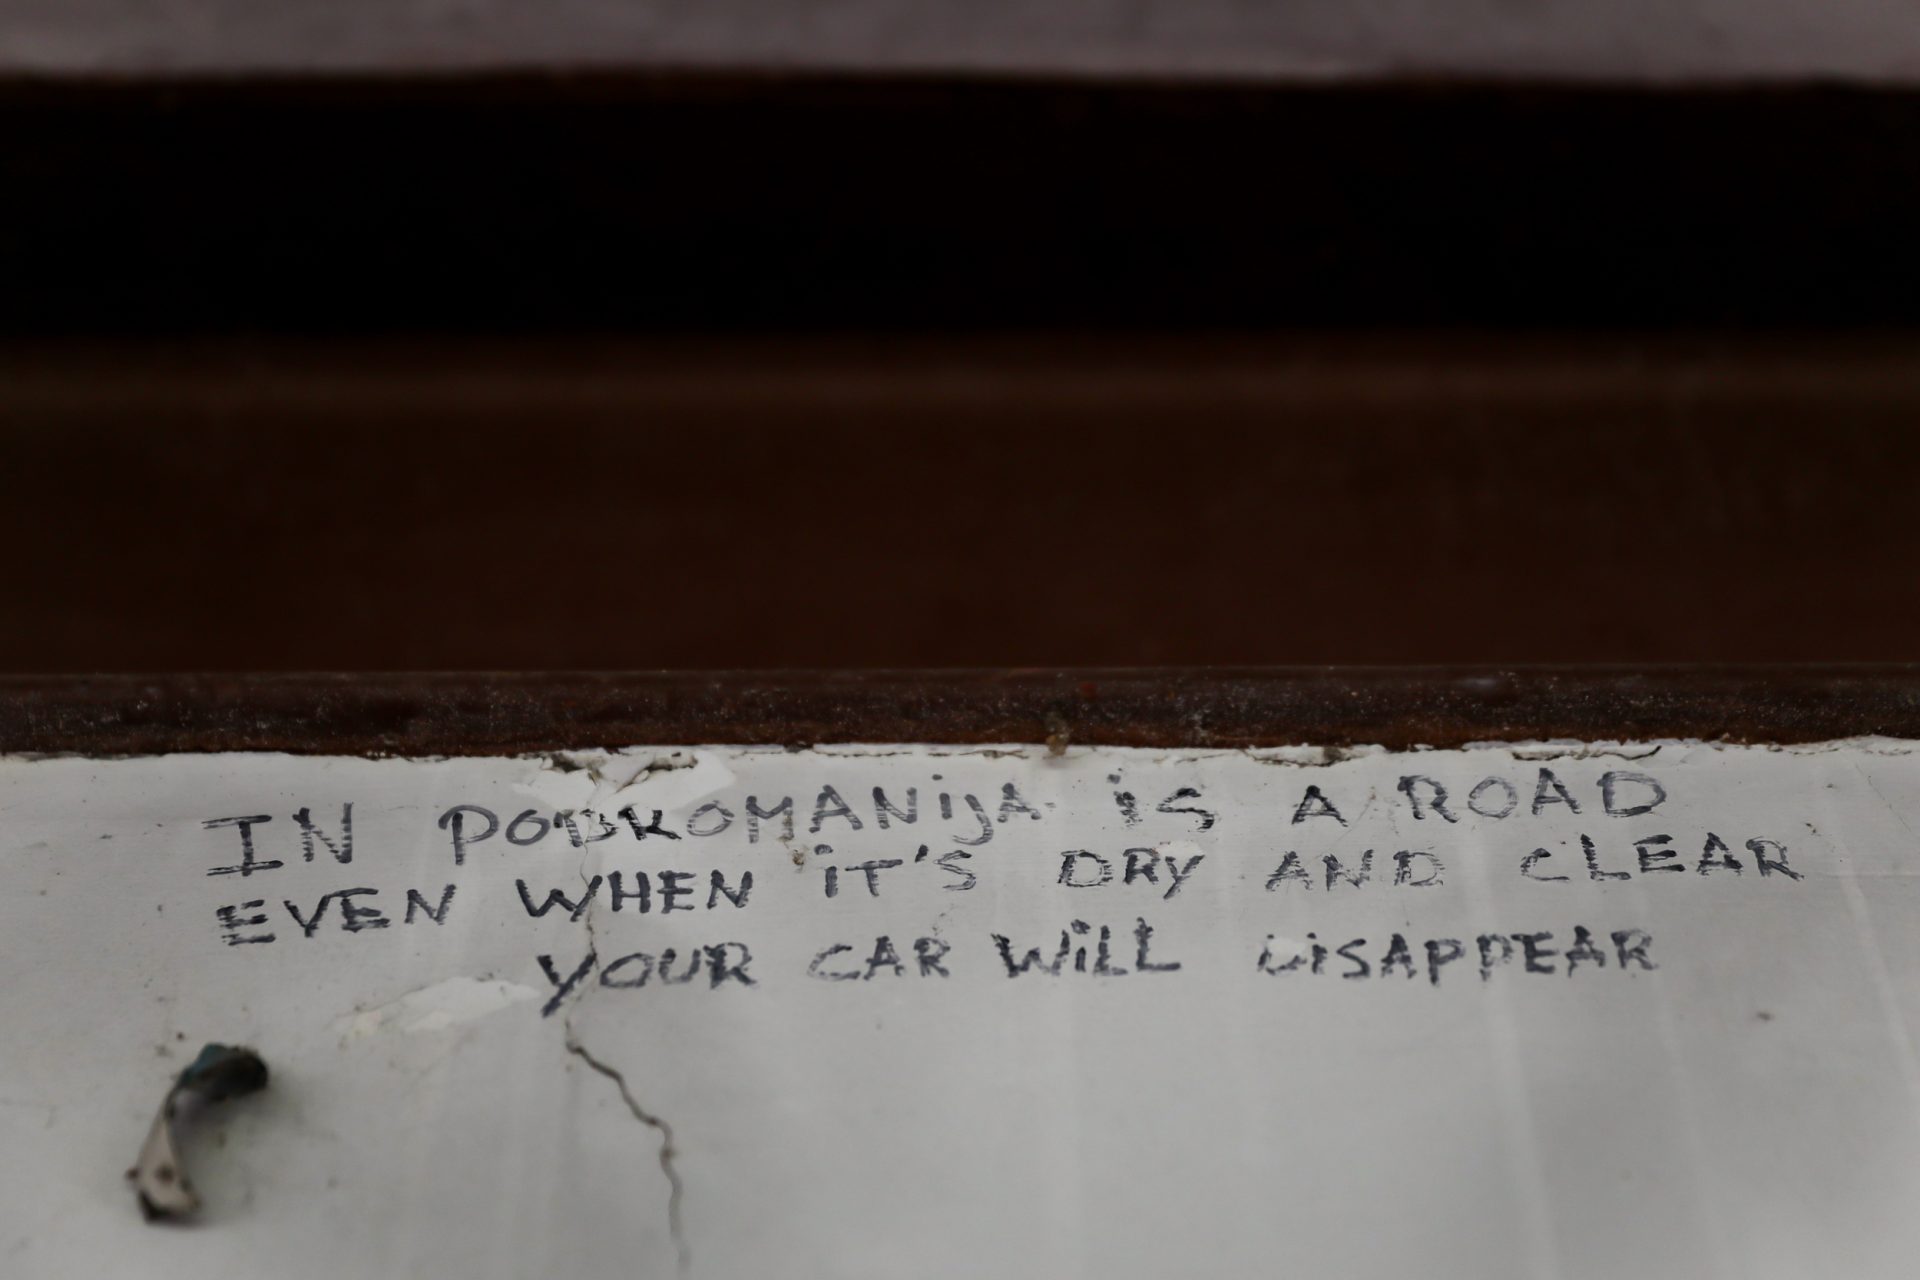 IN PODROMANIJA IS A ROAD
EVEN WHEN IT'S DRY AND CLEAR
YOUR CAR WILL DISAPPEAR